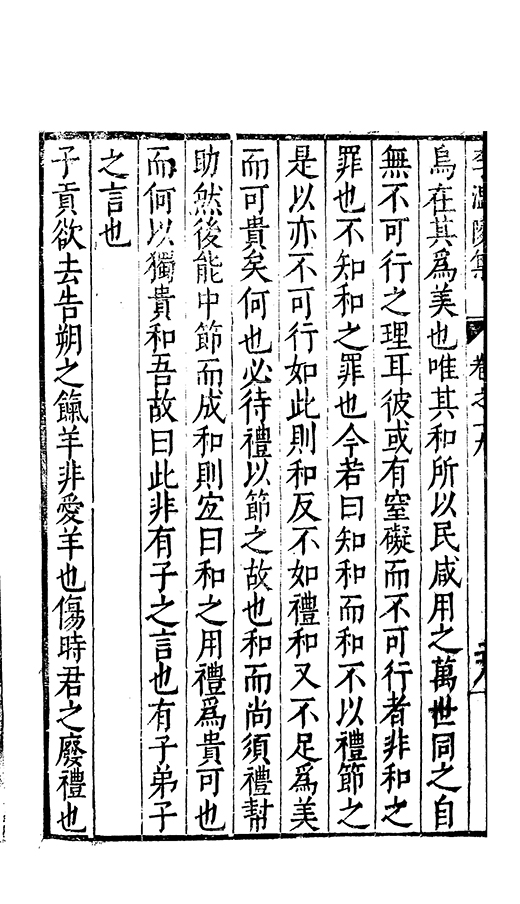 李溫陵集 卷之十九
烏在其爲美也唯其和所以民咸用之萬世同之自
無不可行之理耳彼或有窒礙而不可行者非和之
罪也不知和之罪也今若曰知和而和不以禮節之
是以亦不可行如此則和反不如禮和又不足爲美
而可貴矣何也必待禮以節之故也和而尚須禮幇
助然後能中節而成和則宐曰和之用禮爲貴可也
而何以獨貴和吾故曰此非有子之言也有子弟子
之言也
子貢欲去告朔之餼羊非愛羊也傷時君之廢禮也